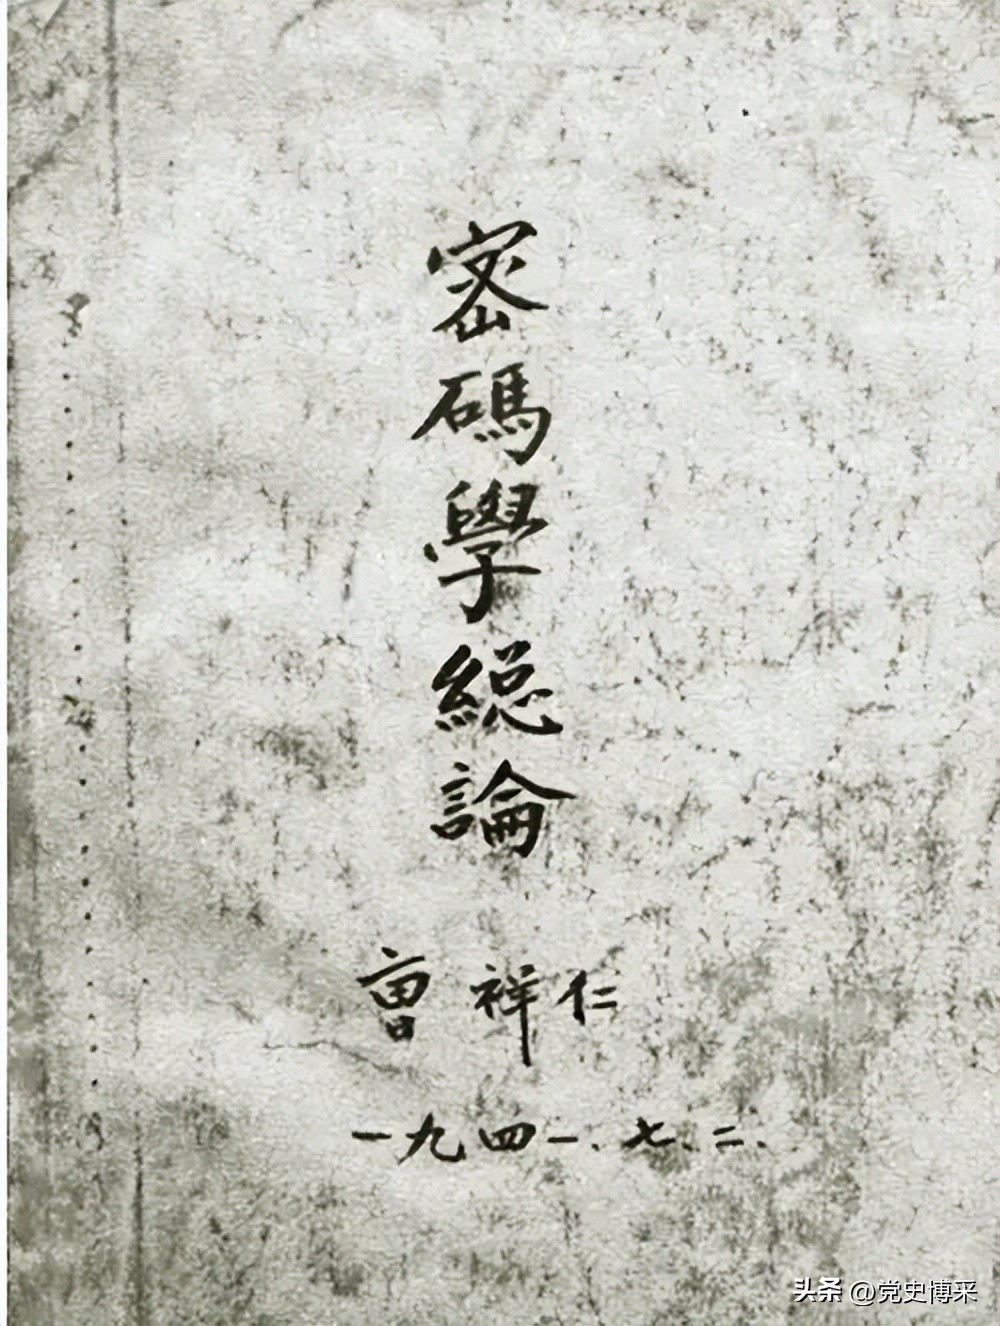 密碼學総論
曹祥仁
一九四一.七.二.
头条 @党史博采